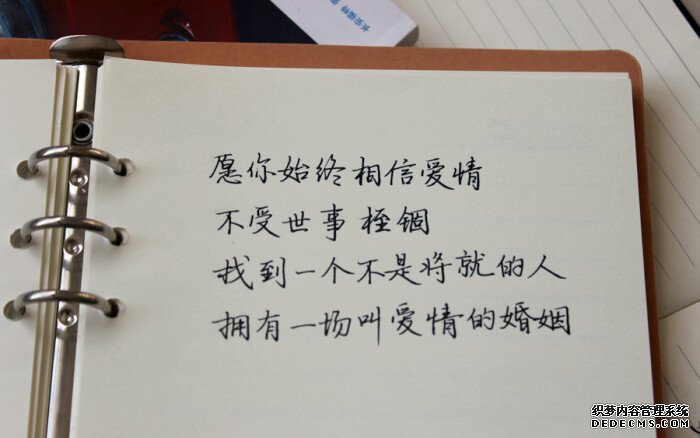 长安福特
愿你始终相信爱情
不受世事桎锢
找到一个不是将就的人
拥有一场叫爱情的婚姻
织梦内容管理系统
DEDECMS.COM